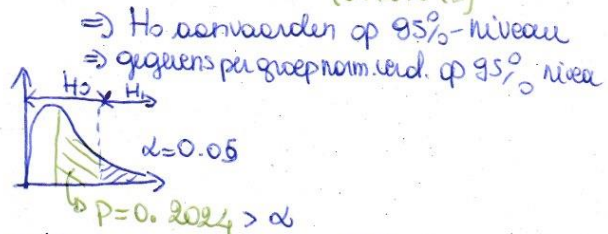 => Ho aanvaarden op 95%-niveau
=> gegevens per groep norm. verd. op 95% nivea
Ho H1
α=0.05
P=0.2024 > α